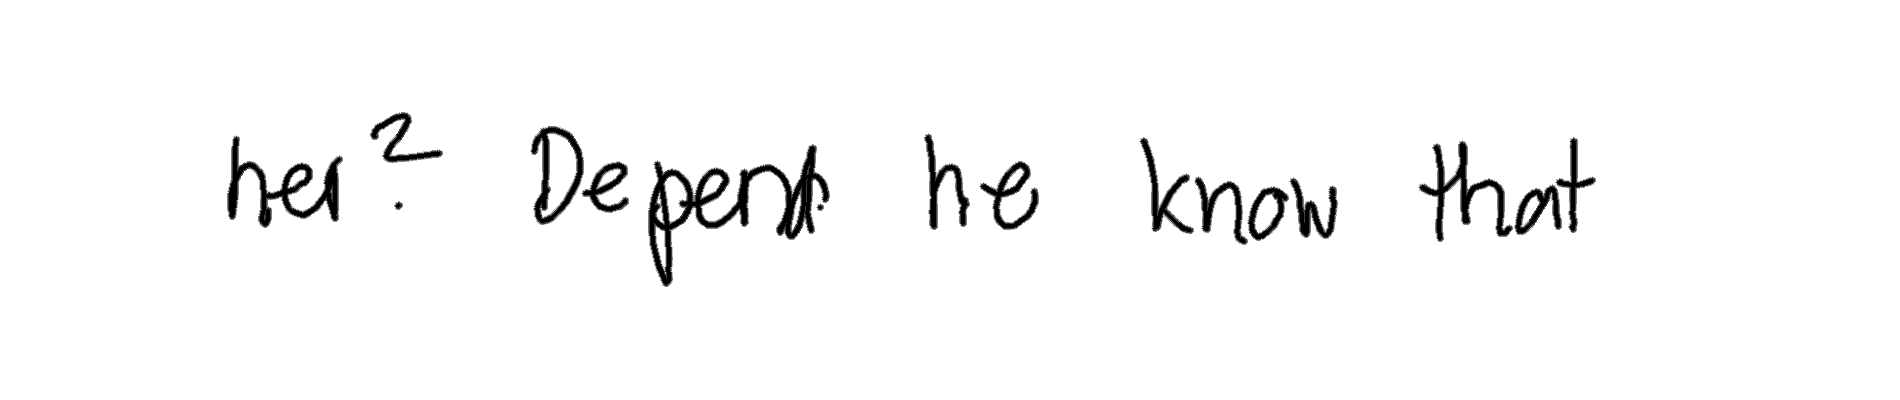 her? Depends he know that